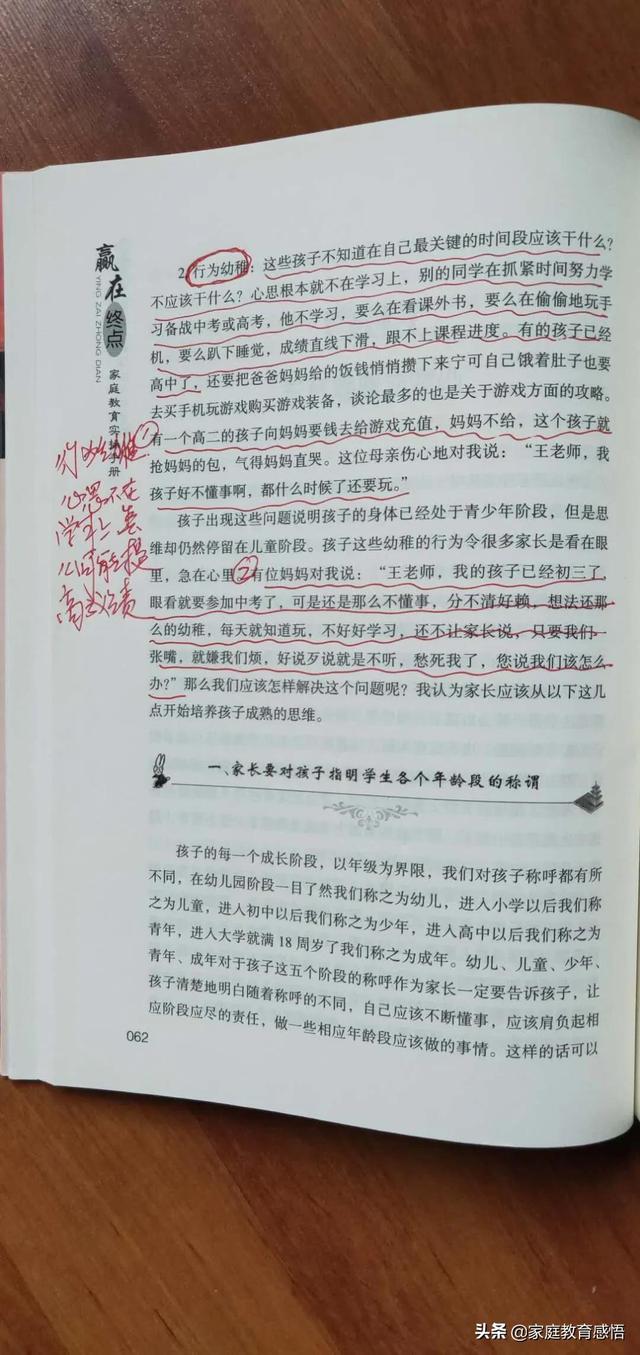 赢在终点
YING ZAI ZHONG DIAN
家庭教育实
册
2. 行为幼稚：这些孩子不知道在自己最关键的时间段应该干什么？
不应该干什么？心思根本就不在学习上，别的同学在抓紧时间努力学
习备战中考或高考，他不学习，要么在看课外书，要么在偷偷地玩手
机，要么趴下睡觉，成绩直线下滑，跟不上课程进度。有的孩子已经
高中了，还要把爸爸妈妈给的饭钱悄悄攒下来宁可自己饿着肚子也要
去买手机玩游戏购买游戏装备，谈论最多的也是关于游戏方面的攻略。
有一个高二的孩子向妈妈要钱去给游戏充值，妈妈不给，这个孩子就
抢妈妈的包，气得妈妈直哭。这位母亲伤心地对我说：“王老师，我
孩子好不懂事啊，都什么时候了还要玩。”
孩子出现这些问题说明孩子的身体已经处于青少年阶段，但是思
维却仍然停留在儿童阶段。孩子这些幼稚的行为令很多家长是看在眼
里，急在心里②有位妈妈对我说：“王老师，我的孩子已经初三了，
眼看就要参加中考了，可是还是那么不懂事，分不清好赖，想法还那
么的幼稚，每天就知道玩，不好好学习，还不让家长说，只要我们一
张嘴，就嫌我们烦，好说歹说就是不听，愁死我了，您说我们该怎么
办？”那么我们应该怎样解决这个问题呢？我认为家长应该从以下这几
点开始培养孩子成熟的思维。
①
心思不在
学习上
高成绩
一、家长要对孩子指明学生各个年龄段的称谓
孩子的每一个成长阶段，以年级为界限，我们对孩子称呼都有所
不同，在幼儿园阶段一目了然我们称之为幼儿，进入小学以后我们称
之为儿童，进入初中以后我们称之为少年，进入高中以后我们称之为
青年，进入大学就满 18 周岁了我们称之为成年。幼儿、儿童、少年、
青年、成年对于孩子这五个阶段的称呼作为家长一定要告诉孩子，让
孩子清楚地明白随着称呼的不同，自己应该不断懂事，应该肩负起相
应阶段应尽的责任，做一些相应年龄段应该做的事情。这样的话可以
062
头条 @家庭教育感悟